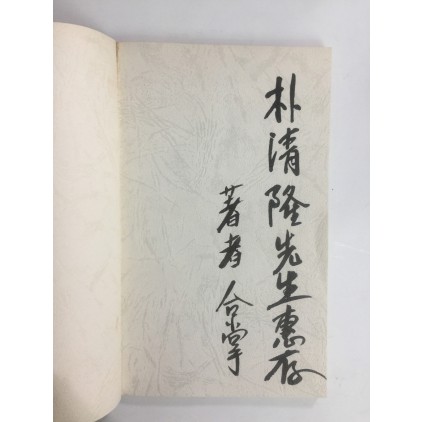 朴清隆先生惠存
著者 合掌